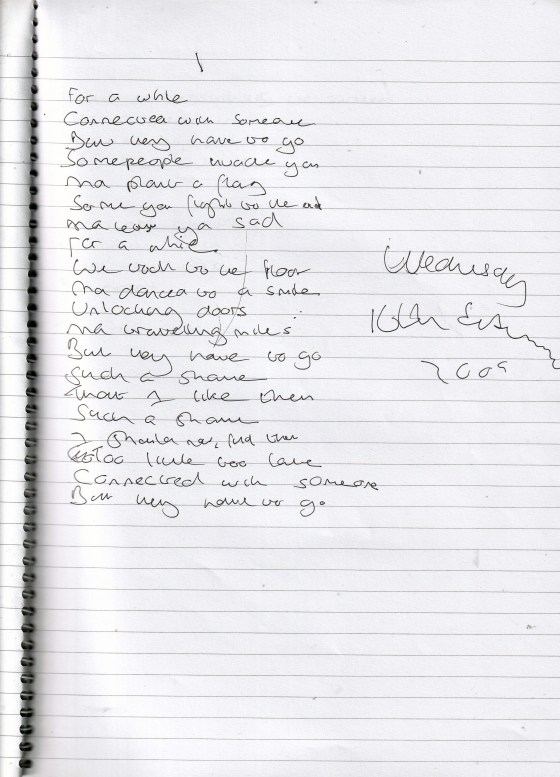 1
For a while
Connected with someone
But they have to go
Some people invade you
And plant a flag
Some you fight to the end
makes ya sad
For a while
We took to the floor
And danced to a smile
Unlocking doors
And travelling miles
But they have to go
Such a shame
that I like them
Such a shame
I should
too little too late
Connected with someone
But they have to go.
Wednesday
16th
2009